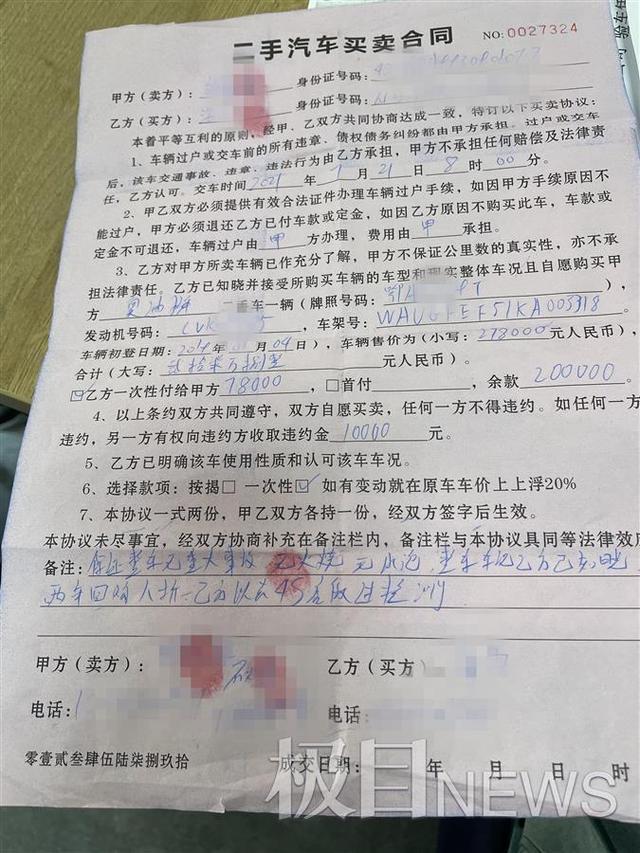 二手汽车买卖合同 NO:0027324
甲方（卖方）： 身份证号码：
乙方（买方）： 身份证号码：
本着平等互利的原则，经甲、乙双方共同协商达成一致，特订以下买卖协议：
1、车辆过户或交车前的所有违章、债权债务纠纷都由甲方承担。过户或交车
后，该车交通事故、违章、违法行为由乙方承担，甲方不承担任何赔偿及法律责
任，乙方认可。交车时间2021年1月21日8时00分。
2、甲乙双方必须提供有效合法证件办理车辆过户手续，如因甲方手续原因不
能过户，甲方必须退还乙方已付车款或定金，如因乙方原因不购买此车，车款或
定金不可退还，车辆过户由甲方办理，费用由甲承担。
3、乙方对甲方所卖车辆已作充分了解，甲方不保证公里数的真实性，亦不承
担法律责任。乙方已知晓并接受所购买车辆的车型和现实整体车况且自愿购买甲
方 二手车一辆（牌照号码：鄂A
发动机号码：CVK 5，车架号：WAUGFEF51KA005318
车辆初登日期：04日），车辆售价为（小写：278000元人民币），
合计（大写： 元人民币）。
☑乙方一次性付给甲方78000，□首付 ，余款200000
4、以上条约双方共同遵守，双方自愿买卖，任何一方不得违约。如任何一方
违约，另一方有权向违约方收取违约金10000元。
5、乙方已明确该车使用性质和认可该车车况。
6、选择款项：按揭□ 一次性☑ 如有变动就在原车车价上上浮20%
7、本协议一式两份，甲乙双方各持一份，经双方签字后生效。
本协议未尽事宜，经双方协商补充在备注栏内，备注栏与本协议具同等法律效
备注：保证整车无重大事故 无火烧 无水泡 整车车况乙方已知
乙方以去4S店
甲方（卖方）： 乙方（买方）
电话： 电话
零壹贰叁肆伍陆柒捌玖拾 成交日期： 年 月 日 时
极目NEWS